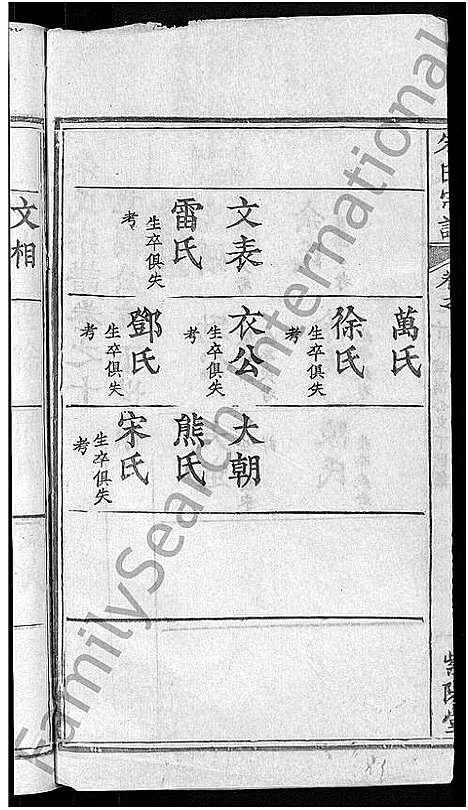 文表
雷氏
生卒俱失
考
萬氏
徐氏
生卒俱失
考
衣公
生卒俱失
考
鄧氏
生卒俱失
考
大朝
熊氏
宋氏
生卒俱失
考
文相
FamilySearch International